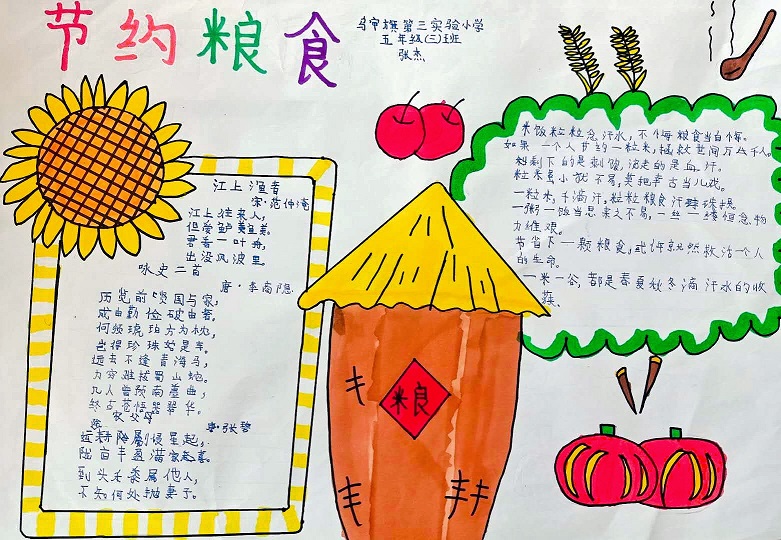 节约粮食
乌审旗第三实验小学
五年级(三)班
张杰
江上渔者
宋·范仲淹
江上往来人,
但爱鲈鱼美。
君看一叶舟,
出没风波里。
咏史二首
唐·李商隐
历览前贤国与家,
成由勤俭破由奢。
何须琥珀方为枕,
岂得珍珠始是车。
远去不逢青海马,
力穷难拔蜀山蛇。
几人曾预南薰曲,
终古苍梧哭翠华。
农父
唐·张碧
运耕劚侵星起,
陇亩丰盈满家喜。
到头禾黍属他人,
不知何处抛妻子。
米饭粒粒念汗水,不惜粮食当自悔。
如果一个人节约一粒米,拯救世间万丛千人。
粒米虽小犹不易,莫把辛苦当儿戏。
一粒米,千滴汗,粒粒粮食汗珠换。
一粥一饭当思来之不易,一丝一缕恒念物
力维艰。
节省下一颗粮食,或许就然救活一个人
的生命。
一米一谷,都是春夏秋冬滴汗水的收
获。
粮